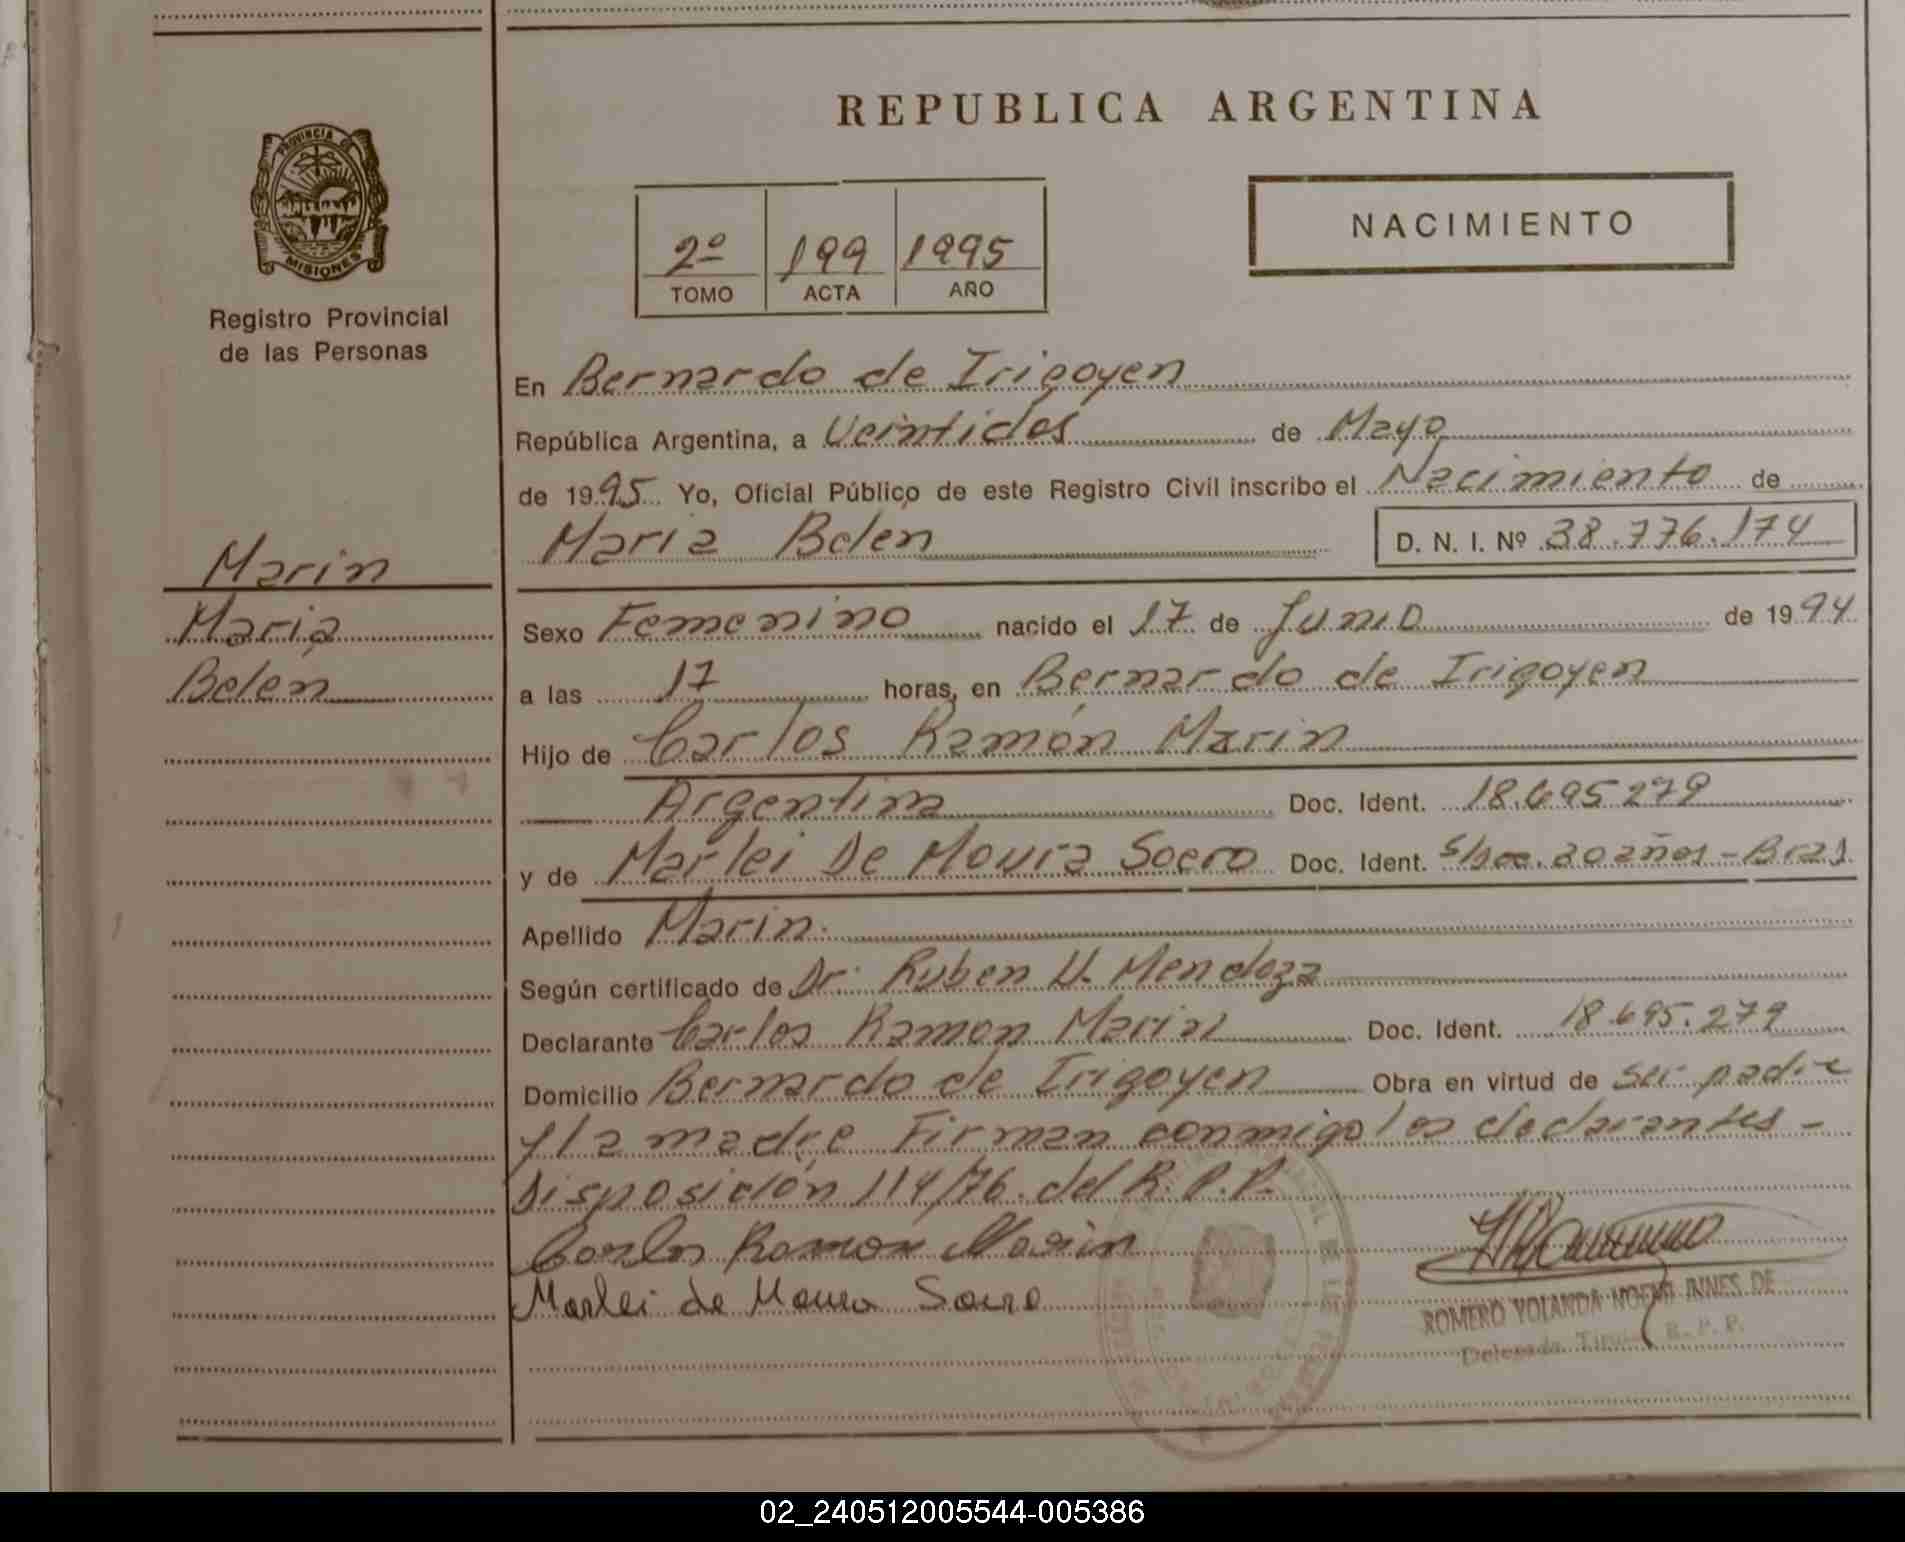 REPUBLICA ARGENTINA
NACIMIENTO
PROVINCIA DE
MISIONES
Registro Provincial
de las Personas
2º 199 1995
TOMO ACTA AÑO
En Bernardo de Irigoyen
República Argentina, a Veintidós de Mayo
de 1995 Yo, Oficial Público de este Registro Civil inscribo el Nacimiento de
Maria Belén D. N. I. Nº 38.776.174
Marin
Maria
Belén
Sexo Femenino nacido el 17 de Junio de 1994
a las 17 horas, en Bernardo de Irigoyen
Hijo de Carlos Ramón Marin
Argentina Doc. Ident. 18.695279
y de Marlei De Moura Soero Doc. Ident. S/Doc. 20 años - Bras
Apellido Marin.
Según certificado de Dr. Ruben U. Mendoza
Declarante Carlos Ramon Marin Doc. Ident. 18.695.279
Domicilio Bernardo de Irigoyen Obra en virtud de ser padre
y la madre Firman conmigo los declarantes -
Disposición 114/76. del R. P. P.
Carlos Ramon Marin
Marlei de Moura Soero
ROMERO YOLANDA NOEMI INNES DE
Delegada Titular R. P. P.
02_240512005544-005386